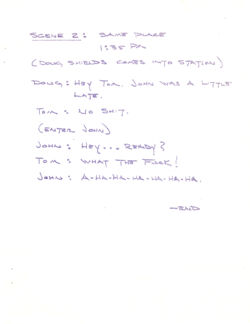 SCENE 2: SAME PLACE
1:35 PM
(DOUG SHIELDS COMES INTO STATION)
DOUG: HEY TOM. JOHN WAS A LITTLE
LATE.
TOM: NO SH-T.
(ENTER JOHN)
JOHN: HEY... READY?
TOM: WHAT THE FUCK!
JOHN: A-HA-HA-HA-HA-HA-HA.
—END